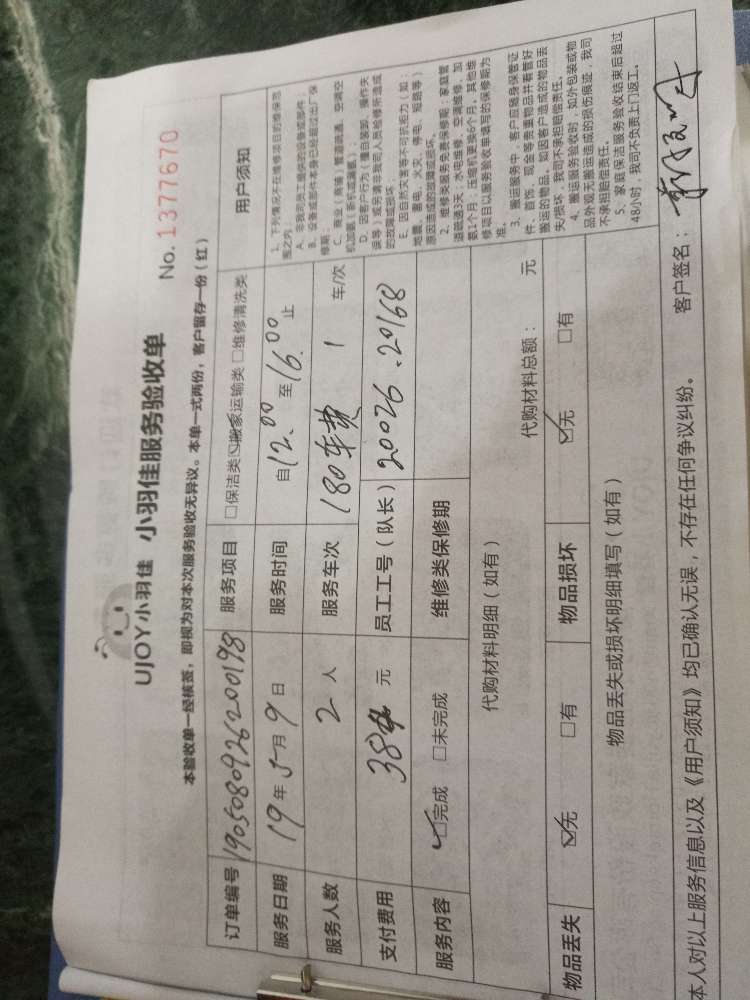 UJOY小羽佳 小羽佳服务验收单
No. 1377670
本验收单一经核签，即视为对本次服务验收无异议。本单一式两份，客户留存一份（红）
订单编号 19050809262200198 服务项目 □保洁类 ☑搬家运输类 □维修清洗类
服务日期 19年5月9日 服务时间 自12.00至16.00止
服务人数 2人 服务车次 180车费 1 车/次
支付费用 元 员工工号（队长） 20026.20168
服务内容 ☑完成 □未完成 维修类保修期
代购材料明细（如有）
代购材料总额： 元
物品丢失 ☑无 □有 物品损坏 ☑无 □有
物品丢失或损坏明细填写（如有）
用户须知
1、下列情况不在维修项目的维保范
围之内：
A、非我司员工提供的设备或部件；
B、设备或部件本身已经超过出厂保
修期；
D、因客户人为（擅自装卸、操作失
误等）或另请非我司人员检修所造成
的故障或损坏；
E、因自然灾害等不可抗拒力（如：
地震、雷电、火灾、停电、短路等）
原因造成的故障或损坏。
2、维修类服务免费保修期：家庭管
道疏通3天；水电维修、空调维修、加
氨1个月；压缩机更换6个月，其他维
修项目以服务验收单填写的保修期为
准。
3、搬运服务中，客户应随身保管证
件、首饰、现金等贵重物品并看管好
搬运的物品，如因客户造成的物品丢
失/损坏，我司不承担赔偿责任。
4、搬运服务验收时，如外包装或物
品外观无搬运造成的损伤痕迹，我司
不承担赔偿责任。
5、家庭保洁服务验收结束后超过
48小时，我司不负责上门返工。
本人对以上服务信息以及《用户须知》均已确认无误，不存在任何争议纠纷。 客户签名：